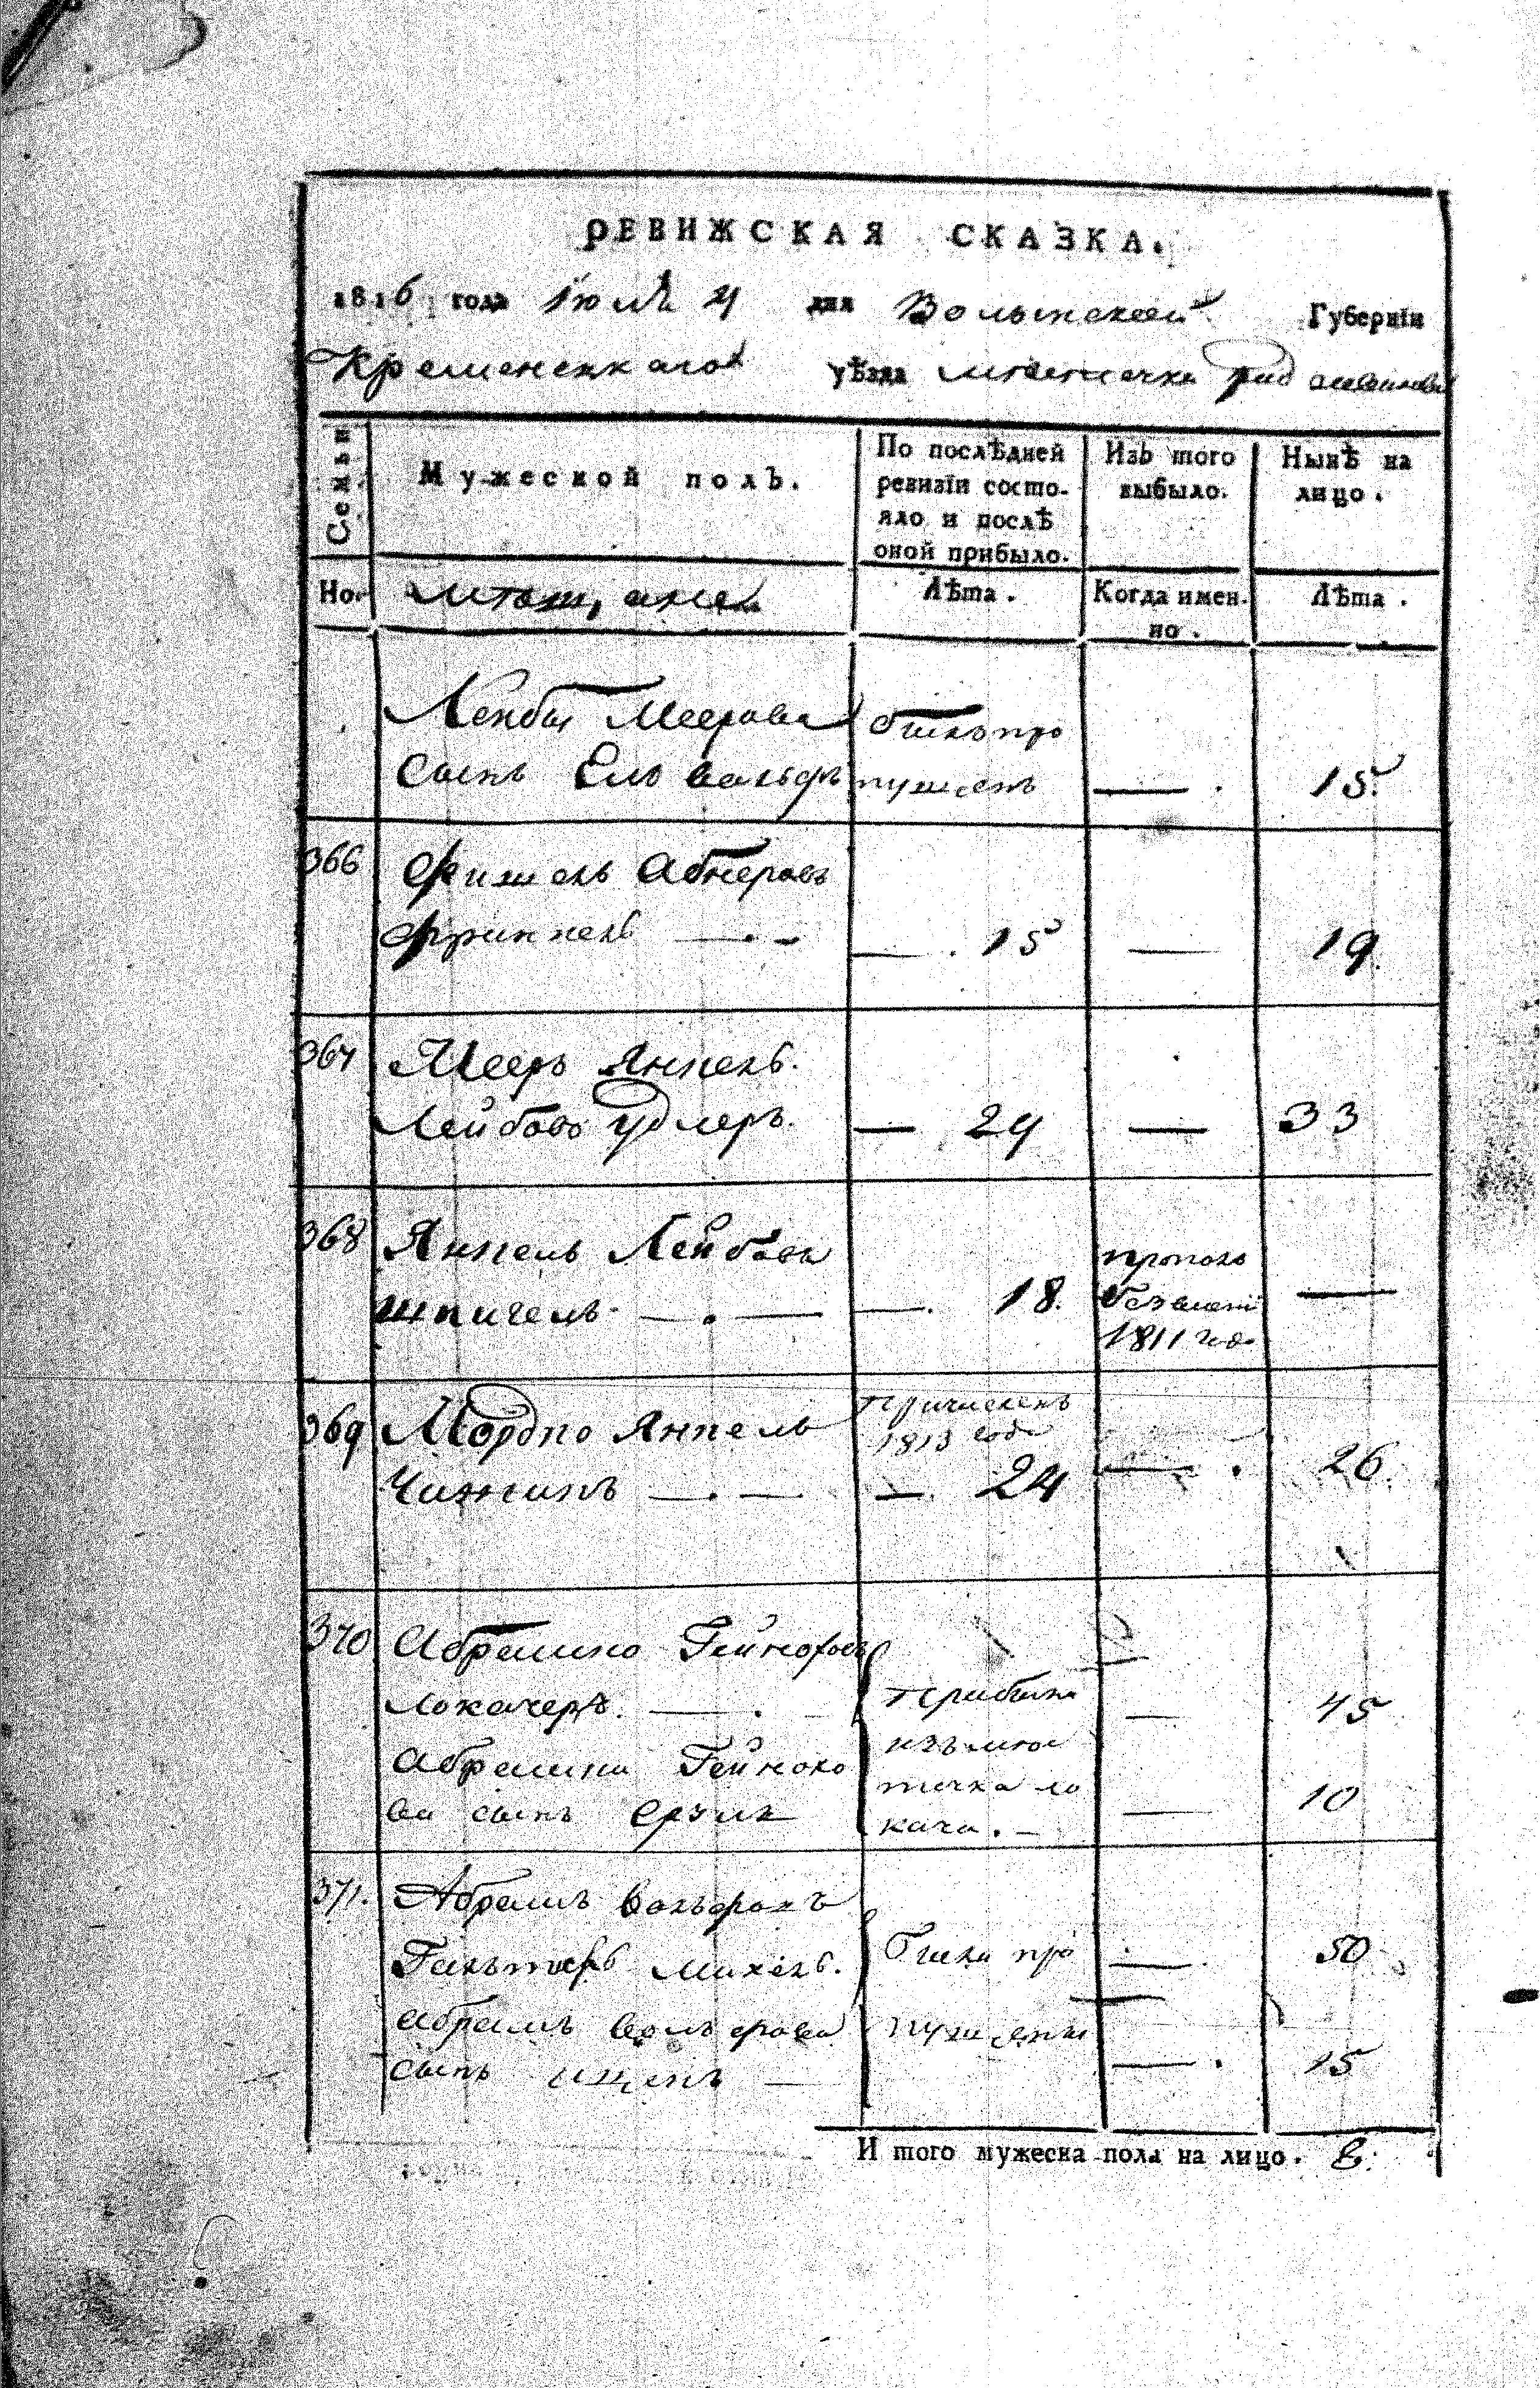 РЕВИЖСКАЯ СКАЗКА.
1816 года Июля 4 дня Волынской Губернїи
Кременецкаго уѣзда местечка
Семьи
Мужеской полъ.
По послѣдней ревизїи состо-
яло и послѣ
оной прибыло.
Изъ того
выбыло.
Нынѣ на
лицо.
Но.
мещане
Лѣта.
Когда имен-
но.
Лѣта.
Лейбы Меерова былъ про
сынъ Ель Вольфъ пущенъ — 15
366 Фишель Абнеровъ
Фринкель — 15 — 19.
367 Мееръ Янкель
Лейбовъ Удлеръ. — 29 — 33
368 Янкель Лейбовъ
Шпигель — 18. пропалъ
безвести
1811 год —
369 Мордко Янкель
Чижикъ — причисленъ
1813 года
— 24 — 26.
370 Абрамко Гейнохов
Локачеръ. — прибыли — 45
Абрамка Гейнохо изъ мес
ва сынъ Срулъ течка Ло
кача. — 10
371. Абрамъ Вольфовъ
были про — 50
Абрамъ Вольфова пущены
сынъ — 15
И того мужеска пола на лицо. 8.